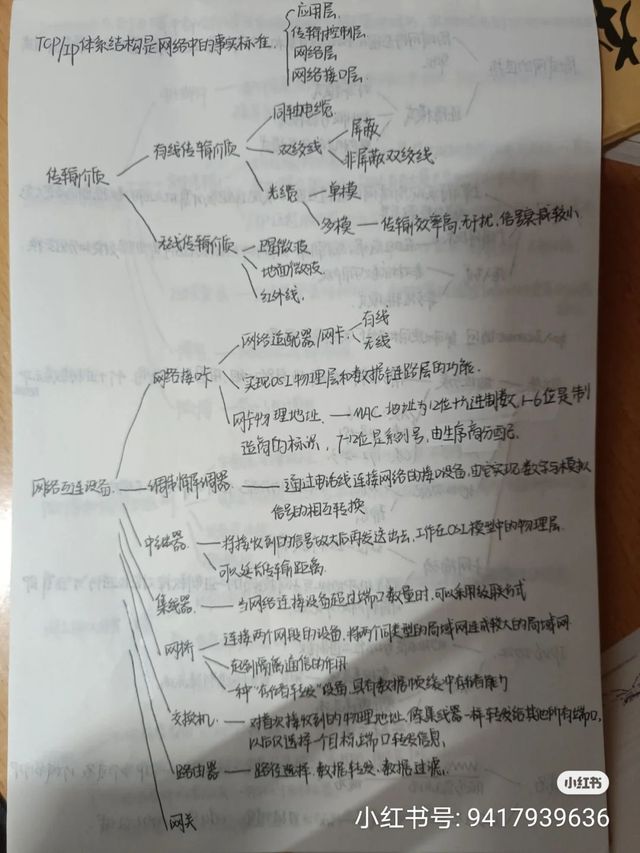 TCP/Ip体系结构是网络中的事实标准.
应用层.
传输控制层
网络层
网络接口层
传输介质
有线传输介质
同轴电缆
双绞线
屏蔽
非屏蔽双绞线
光缆
单模
多模 — 传输效率高,无干扰,信号衰减较小
无线传输介质
卫星微波
地面微波
红外线.
网络互连设备.
网络接口卡
网络适配器/网卡
有线
无线
实现OSI物理层和数据链路层的功能.
网卡物理地址. — MAC 地址为12位十六进制数,1-6位是制
造商的标识,7-12位是系列号,由生产商分配.
调制解调器 — 通过电话线连接网络的接口设备,由它实现数字与模拟
信号的相互转换
中继器 — 将接收到的信号放大后再发送出去,工作在OSI模型中的物理层.
可以延长传输距离
集线器 — 当网络连接设备超过端口数量时,可以采用级联方式
网桥 — 连接两个网段的设备,将两个同类型的局域网连成较大的局域网
起到隔离通信的作用
一种“存储转发”设备,具有数据帧缓冲存储能力
交换机 — 对首次接收到的物理地址,像集线器一样转发给其他所有端口,
以后仅选择一个目标端口转发信息.
路由器 — 路径选择,数据转发,数据过滤.
网关
小红书
小红书号: 9417939636